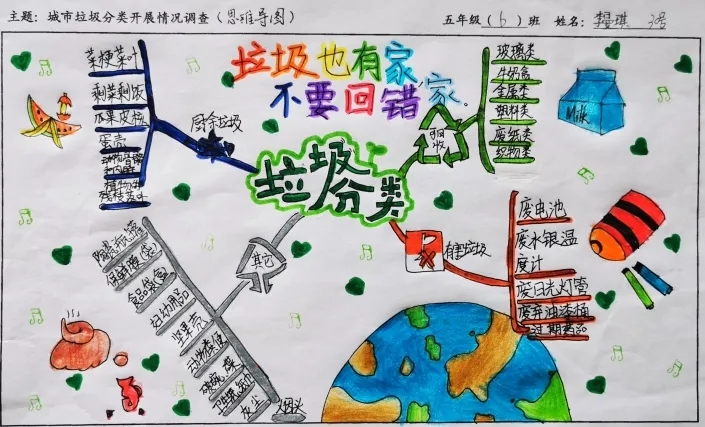 主题：城市垃圾分类开展情况调查（思维导图）
五年级（6）班 姓名：
垃圾也有家
不要回错家。
垃圾分类
厨余垃圾
菜梗菜叶
剩菜剩饭
瓜果皮核
蛋壳
可回收
玻璃类
牛奶盒
金属类
塑料类
废纸类
织物类
Milk
有害垃圾
废电池
废水银温
度计
废日光灯管
废弃油漆桶
过期药品
其它
保鲜膜(袋)
食品袋盒
妇幼用品
坚果壳
动物粪便
灰尘
烟头